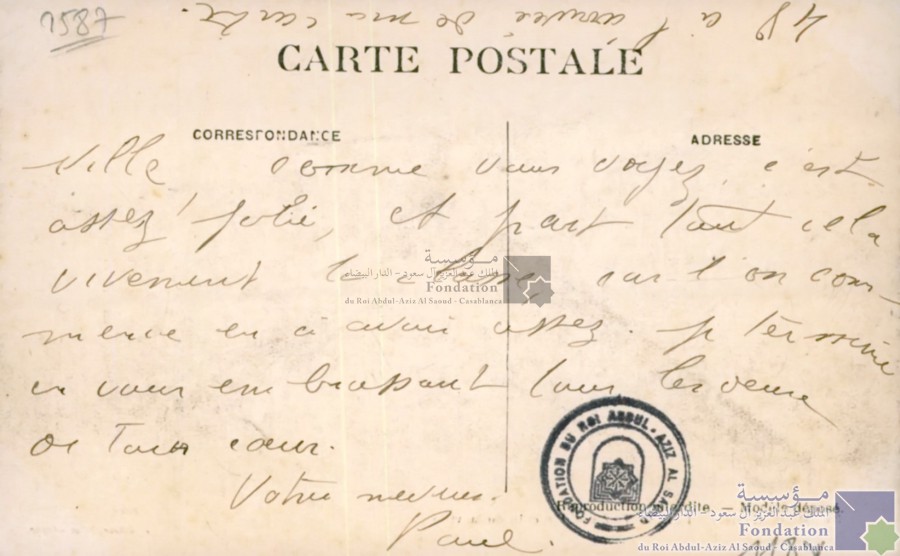 1587
48 à l'arrivée de ma carte.
CARTE POSTALE
CORRESPONDANCE
ADRESSE
Ville comme vous voyez, c'est
assez jolie, et part tout cela
vivement la, car l'on com-
mence en à avoir assez. je termine
en vous embrassant tous les deux
de tout cœur.
Votre neveu.
Paul.
مؤسسة
الملك عبد العزيز آل سعود - الدار البيضاء
Fondation
du Roi Abdul-Aziz Al Saoud - Casablanca
FONDATION DU ROI ABDUL-AZIZ AL SAOUD
Reproduction interdite. — Modèle déposé.
مؤسسة
الملك عبد العزيز آل سعود - الدار البيضاء
Fondation
du Roi Abdul-Aziz Al Saoud - Casablanca